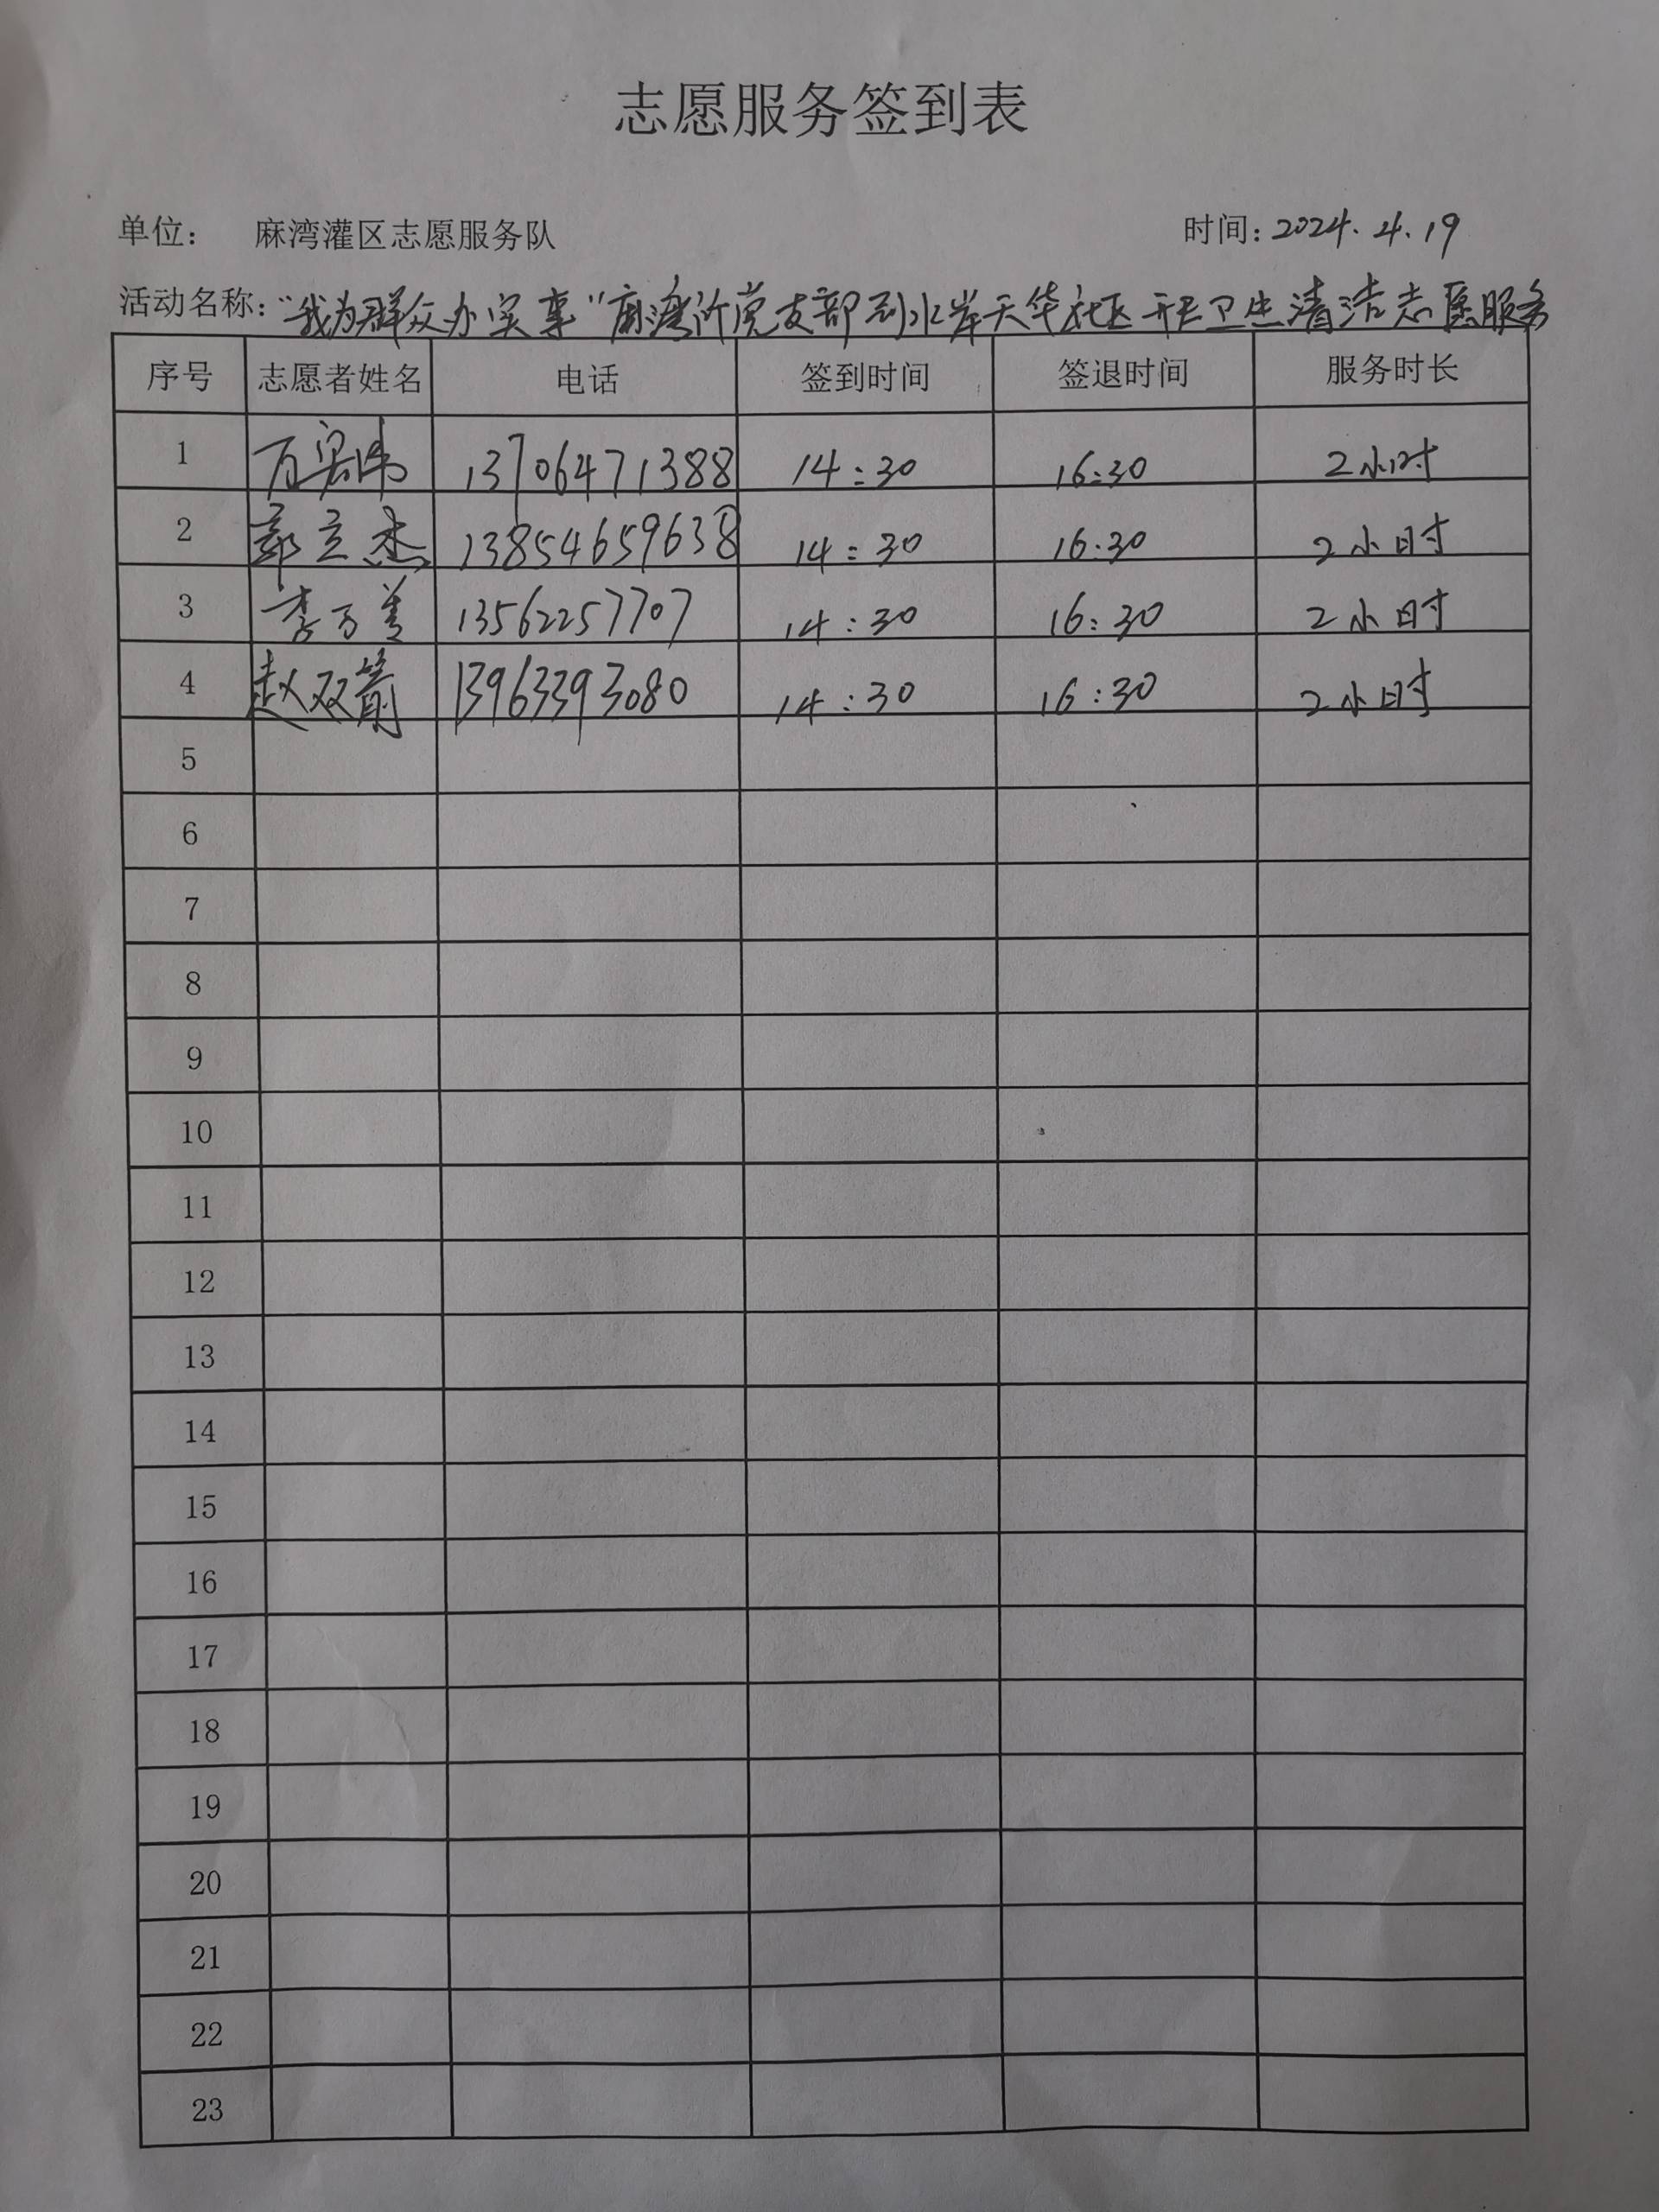 志愿服务签到表
单位: 麻湾灌区志愿服务队 时间: 2024.4.19
活动名称: "我为群众办实事"麻湾所党支部到水岸天华社区开展卫生清洁志愿服务
序号 志愿者姓名 电话 签到时间 签退时间 服务时长
1 13706471388 14:30 16:30 2小时
2 郭立杰 13854659638 14:30 16:30 2小时
3 李万善 13562257707 14:30 16:30 2小时
4 赵双箭 13963393080 14:30 16:30 2小时
5
6
7
8
9
10
11
12
13
14
15
16
17
18
19
20
21
22
23